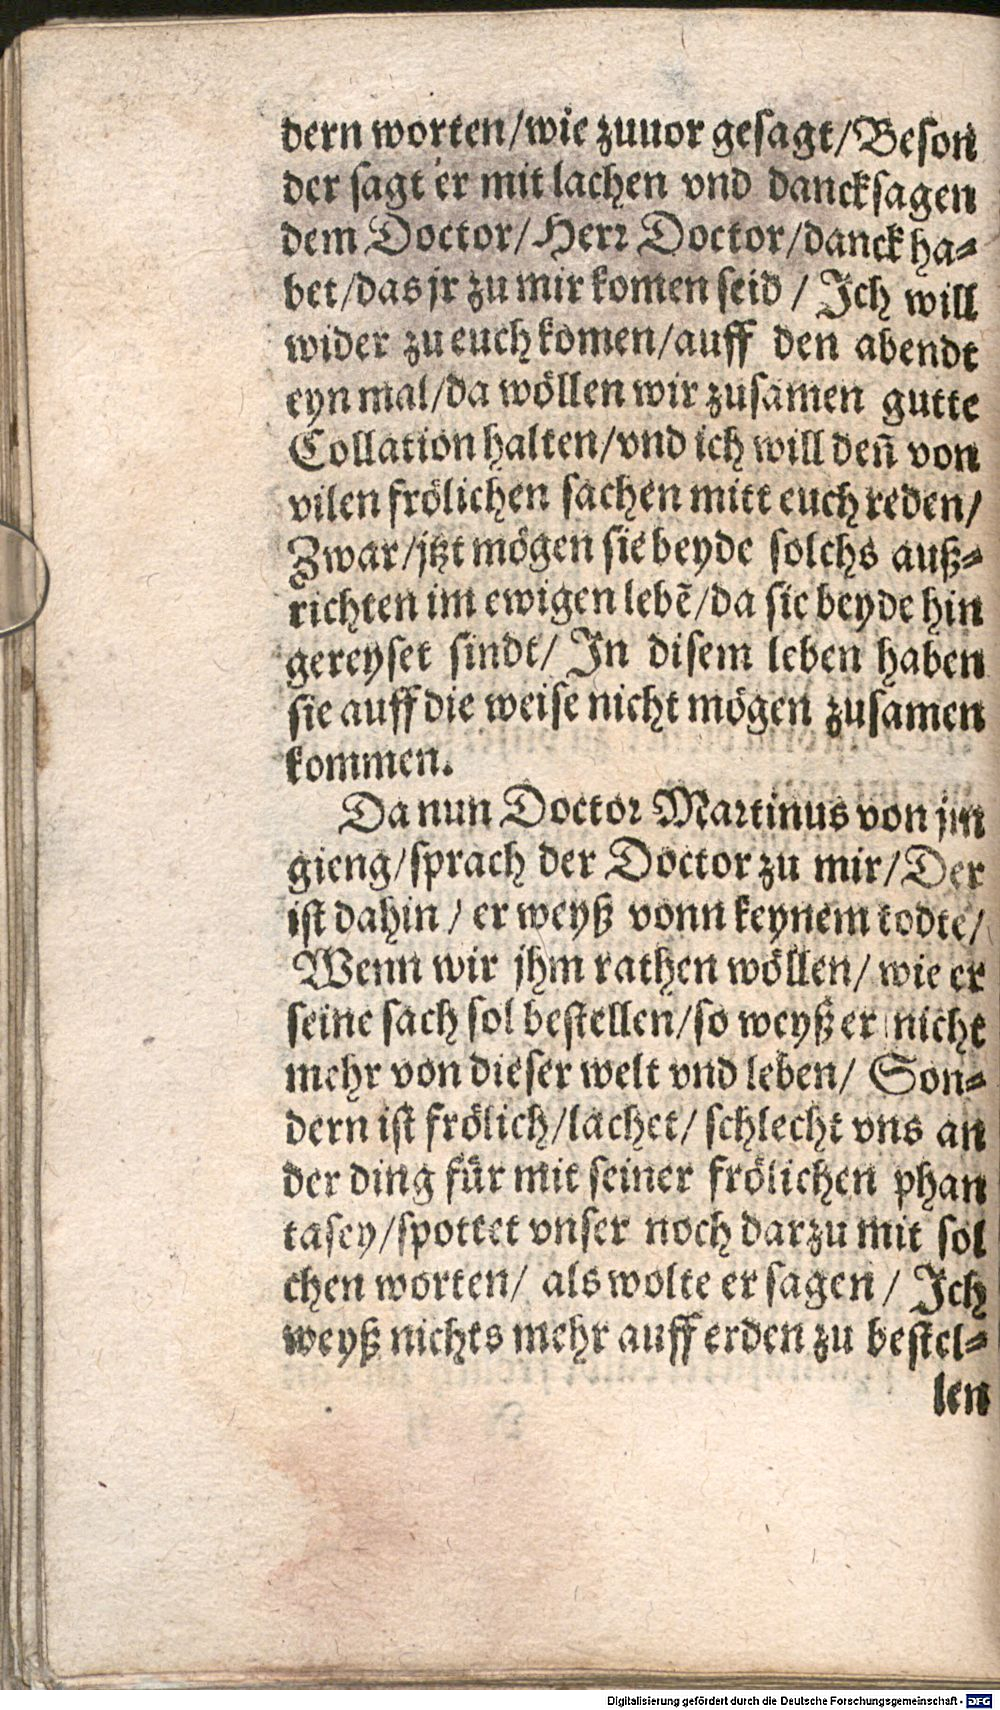 dern worten/wie zuuor gesagt/Beson
der sagt er mit lachen vnd dancksagen
dem Doctor/Herr Doctor/danck ha-
bet/das jr zu mir komen seid / Jch will
wider zu euch komen/auff den abendt
eyn mal/da wöllen wir zusamen gutte
Collation halten/vnd ich will deñ von
vilen frölichen sachen mitt euch reden/
Zwar/jtzt mögen sie beyde solchs auß-
richten im ewigen lebẽ/da sie beyde hin
gereyset sindt/ Jn disem leben haben
sie auff die weise nicht mögen zusamen
kommen.
Da nun Doctor Martinus von jm
gieng/sprach der Doctor zu mir/Der
ist dahin / er weyß vonn keynem todte/
Wenn wir jhm rathen wöllen/ wie er
seine sach sol bestellen/so weyß er nicht
mehr von dieser welt vnd leben/ Son-
dern ist frölich/lachet/ schlecht vns an
der ding für mit seiner frölichen phan
tasey/spottet vnser noch darzu mit sol
chen worten/ als wolte er sagen / Jch
weyß nichts mehr auff erden zu bestel-
len
Digitalisierung gefördert durch die Deutsche Forschungsgemeinschaft - DFG